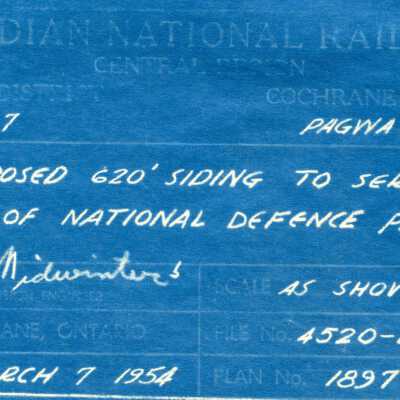 DIAN NATIONAL RAIL
CENTRAL REGION
DISTRICT
COCHRANE
7 PAGWA
OSED 620' SIDING TO SER
OF NATIONAL DEFENCE P
Midwinters
SCALE AS SHOW
ANE, ONTARIO FILE No. 4520-
RCH 7 1954 PLAN No. 1897